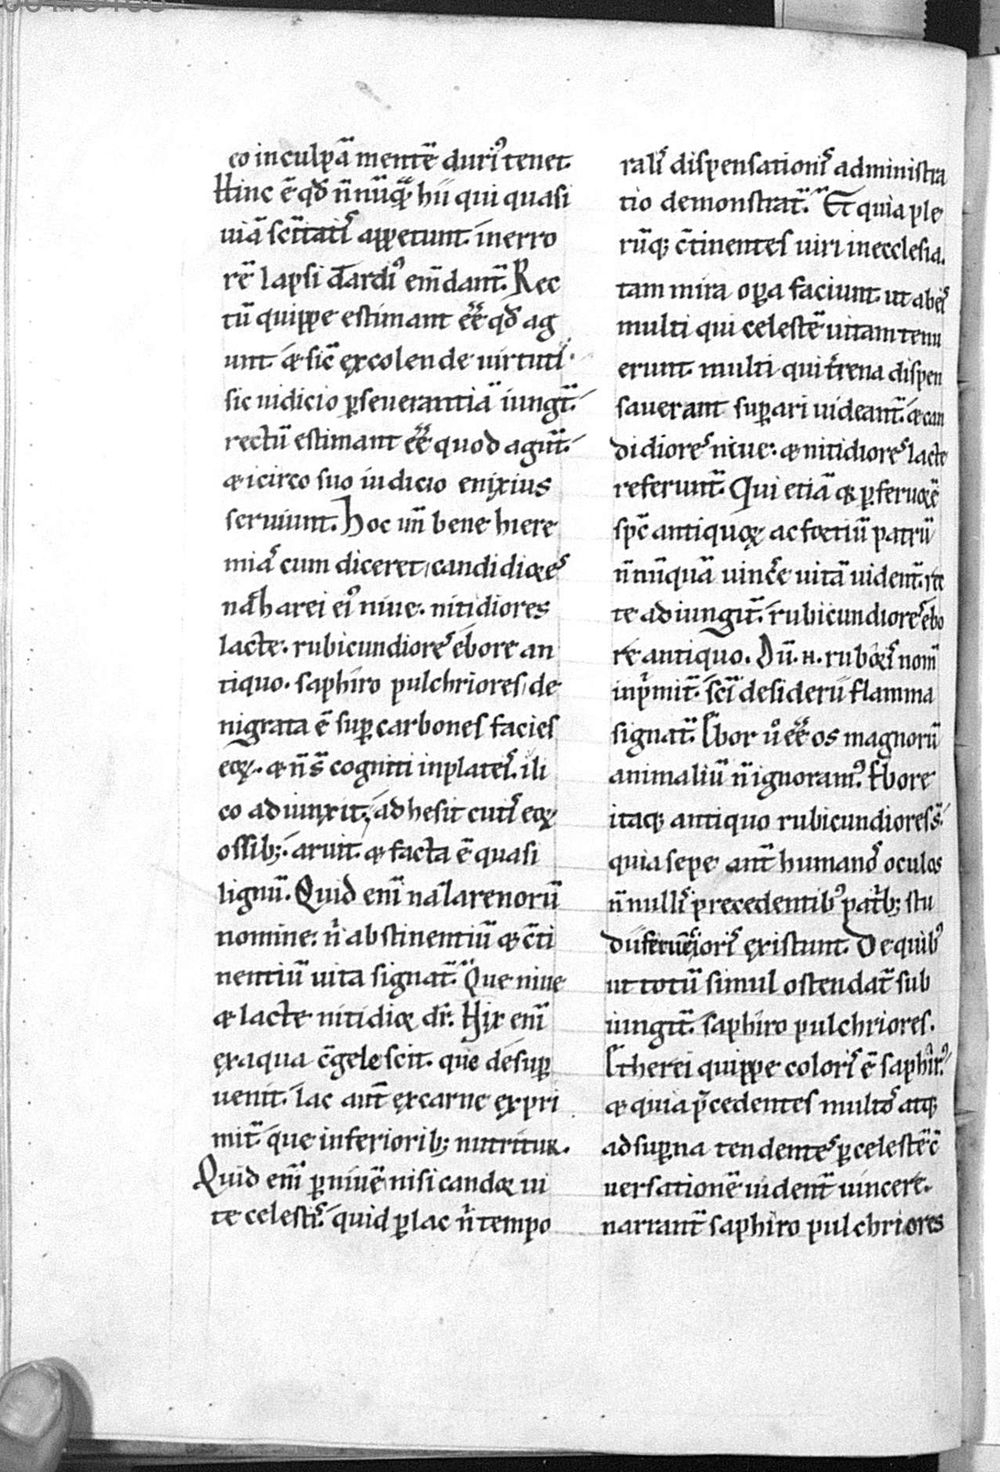 eo inculpā mentē duri᷒ tenet.
Hinc ē qđ n̄nūq̄ hii qui quasi
uiā sc̄itatis appetunt. in erro
rē lapsi tardi᷒ em̄dant̄. Rec
tū quippe estimant eē̄ qđ ag
unt. & sic̄ excolende uirtutis.
sic iudicio ꝑseuerantiā iungt̄.
rectū estimant eē̄ quod agūt.
& icirco suo iudicio enixius
seruiunt. Hoc un̄ bene hiere
mias cum diceret, candidiores
nazharei ei᷒ niue. nitidiores
lacte. rubicundiores ebore an
tiquo. saphiro pulchriores, de
nigrata ē suꝑ carbones facies
eoꝝ. & n̄ s̄ cogniti in plateis. ili
co adiunxit, adhesit cutis eoꝝ
ossib;. aruit. & facta ē quasi
lignū. Quid eni̅ nazarenorū
nomine. n̄ abstinentiū & c̄ti
nentiū uita signat̄. Que niue
& lacte nitidior dr̄. Nix eni̅
ex aqua c̄gelescit. que desuꝑ
uenit. lac aut̄ ex carne expri
mit̄ que inferiorib; nutritur.
Quid eni̅ ꝑ niuē nisi candor ui
te celestis. quid ꝑ lac n̄ tempo
ralis dispensationis administra
tio demonstrat̄. Et quia ple
rūq; c̄tinentes uiri in ecclesia.
tam mira oꝑa faciunt. ut ab eis
multi qui celestē uitam tenu
erunt multi qui t̄rena dispen
sauerant suꝑari uideant̄. & can
didiores niue. & nitidiores lacte
referunt̄. Qui etiā q; ꝑ feruorē
sp̄c antiquoꝝ ac fortiū patrū
n̄nūquā uincē uitā uident̄. rec
te adiungit̄. rubicundiores ebo
re antiquo. Dū .n. ruboris nom̄
inp̄mit̄. sc̄i desiderii flamma
signat̄. Ebor u᷒ eē̄ os magnorū
animaliū n̄ ignoram᷒. Ebore
itaq; antiquo rubicundiores s̄.
quia sepe ant̄ humanos oculos
n̄nullis precedentib᷒ pat̄b; stu
dii feruētioris existunt. De quib᷒
ut totū simul ostendat̄ sub
iungit̄. saphiro pulchriores.
Etherei quippe coloris ē saphir᷒.
& quia p̄cedentes multos atq;
ad suꝑna tendentes ꝑ celestē c̄
uersationē uident̄ uincere.
narrant̄ saphiro pulchriores